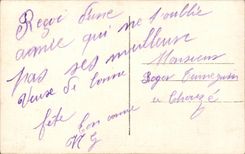 Reçoi d'une
amie qui ne t'oublie
pas ses meilleurs
Vœux de bonne
fête
Ton amie
Monsieur
Roger
à Chouzé